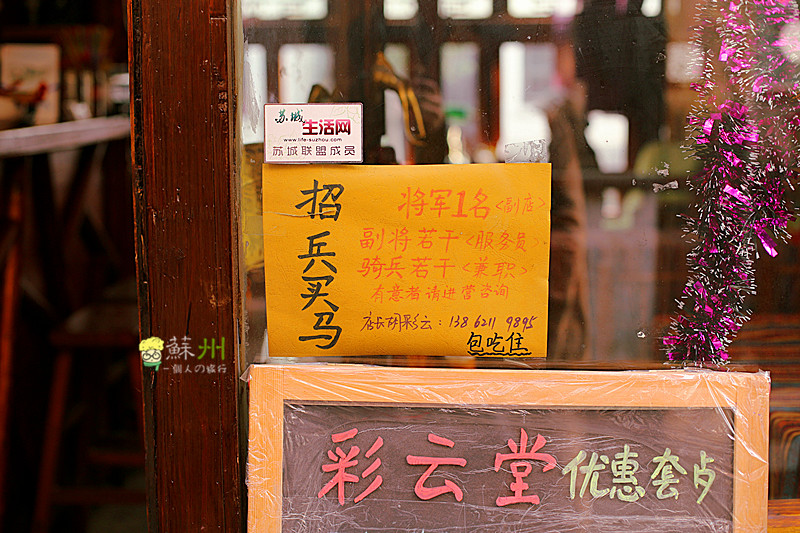 苏城
生活网
www.life-suzhou.com
苏城联盟成员
招兵买马
将军1名<副店>
副将若干<服务员>
骑兵若干<兼职>
有意者请进营咨询
店长胡彩云：138 6211 9895
包吃住
蘇州
一個人の旅行
彩云堂
优惠套占